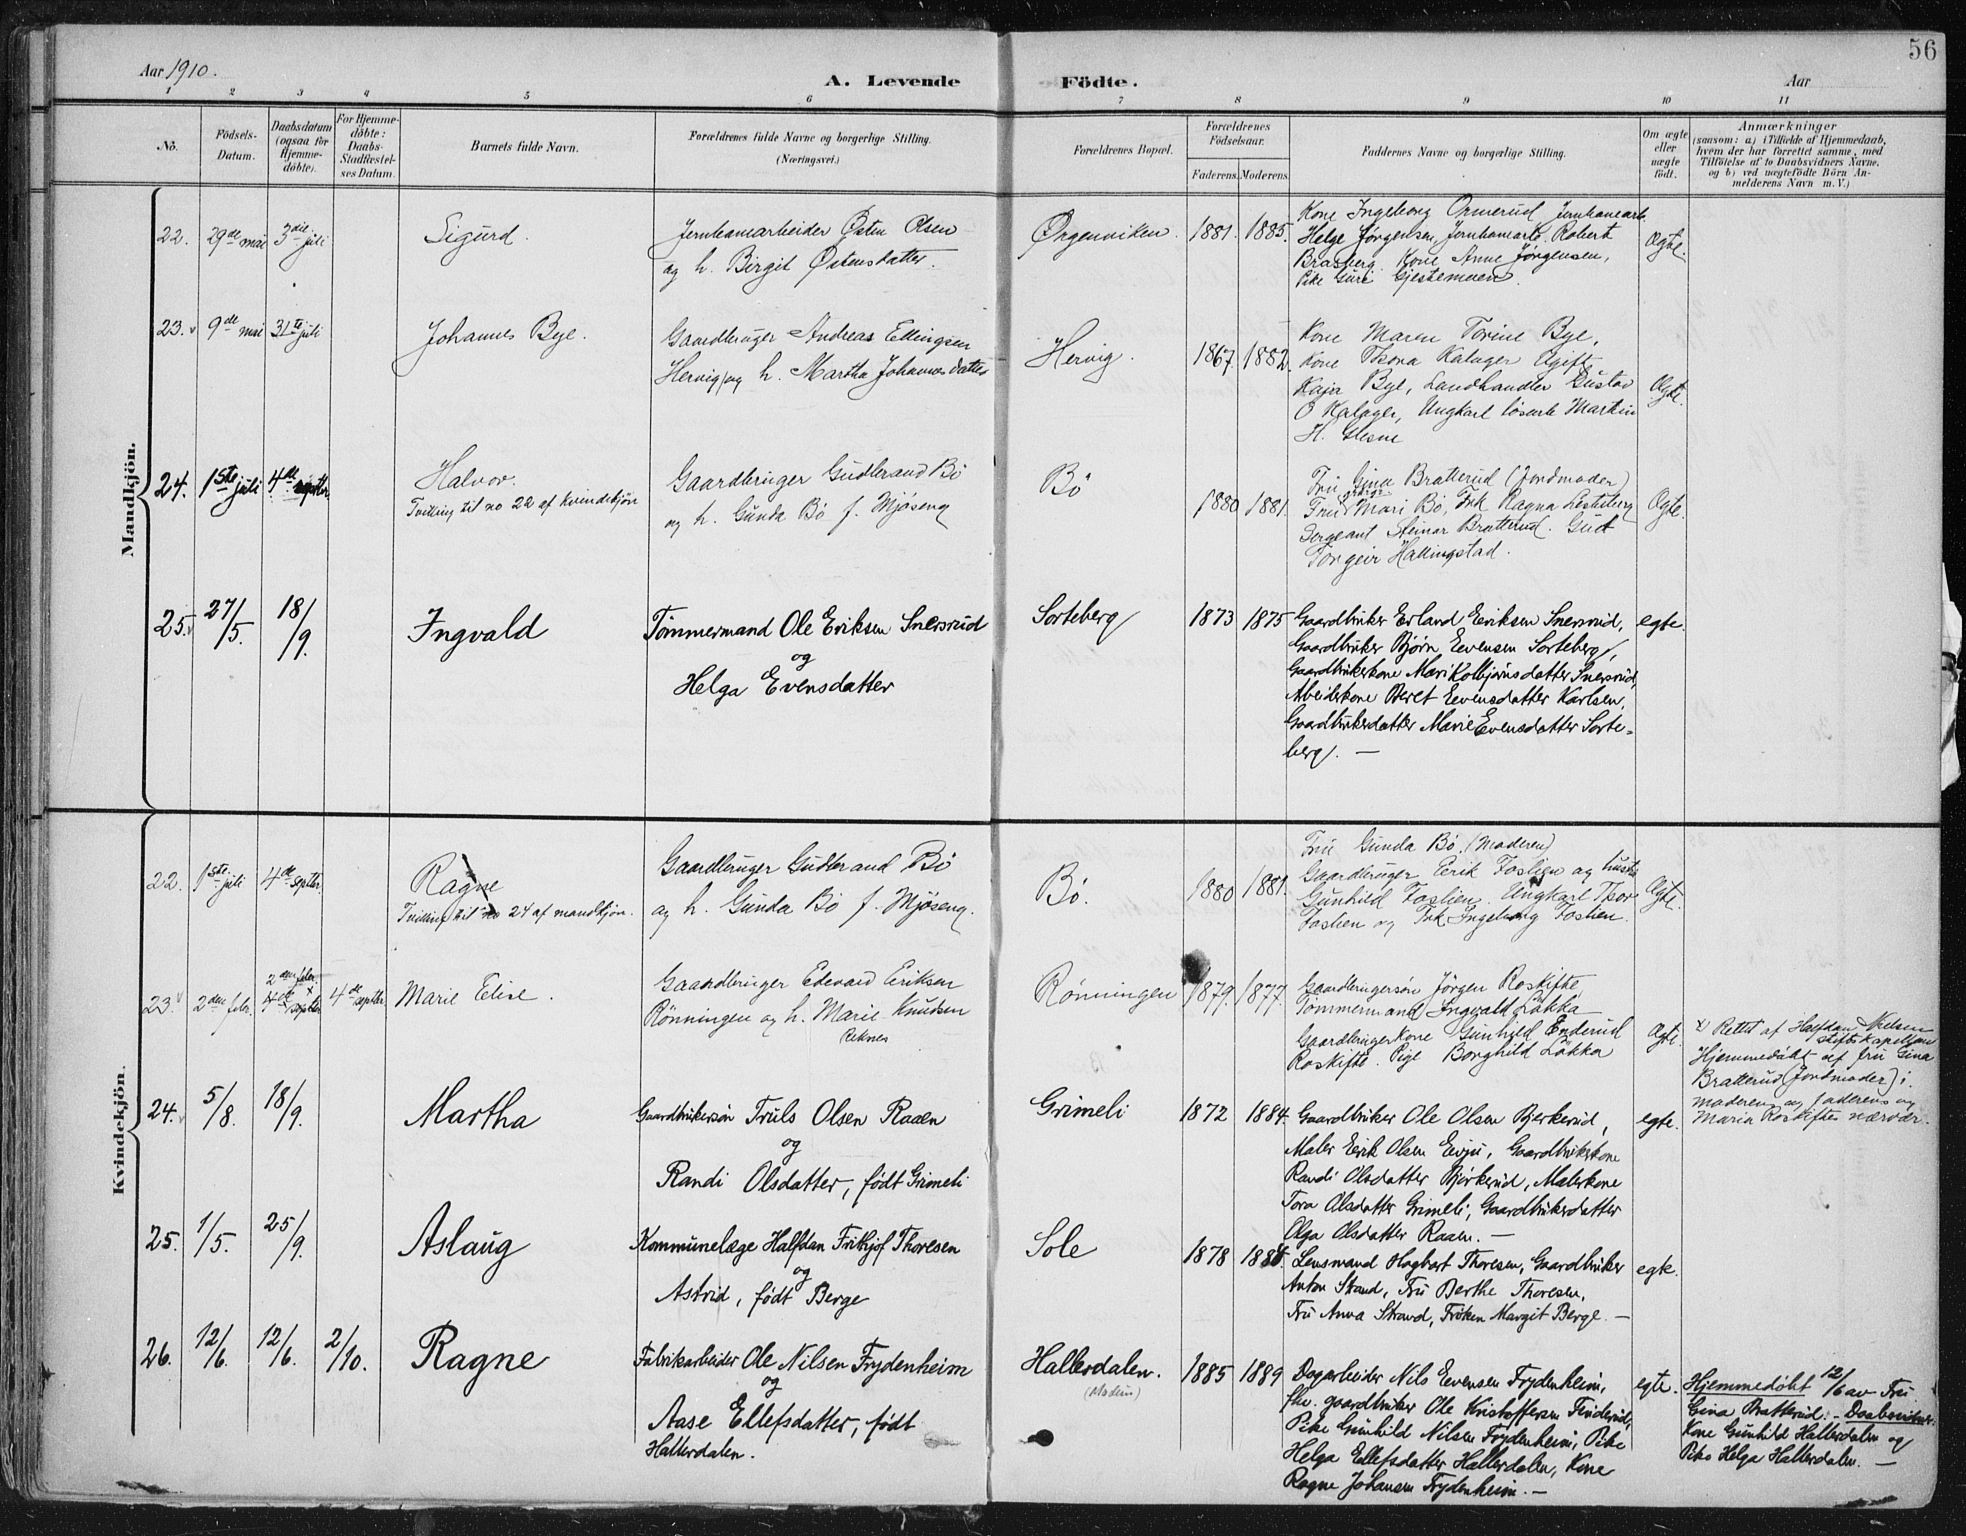 56
Aar 1910.
A. Levende Födte.
Aar
1 2 3 4 5 6 7 8 9 10 11
No.
Födsels-Datum.
Daabsdatum (ogsaa for Hjemmedöbte).
For Hjemmedöbte: Daabs-Stadfæstelses Datum.
Barnets fulde Navn.
Forældrenes fulde Navne og borgerlige Stilling.
(Næringsvei.)
Forældrenes Bopæl.
Forældrenes Födselsaar.
Faderens. Moderens.
Faddernes Navne og borgerlige Stilling.
Om ægte eller uægte födt.
Anmærkninger
(saasom: a) i Tilfælde af Hjemmedaab, hvem der har forrettet samme, med Tilföielse af to Daabsvidners Navne, og b) ved uægtefödte Börn Anmelderens Navn m. V.)
Mandkjön.
22. 29de mai 3die juli
Sigurd.
Jernbanearbeider Østen Olsen
og h. Birgit Østensdatter.
Ørgenviken. 1881. 1885.
Kone Ingeborg Ormerud Jernbanearb.
Helge Jørgensen, Jernbanearb. Robert
Braaberg Kone Anne Jørgensen,
Pike Guri Gjestemoen.
Ægte.
23. 9de mai 31te juli
Johannes Bye.
Gaardbruger Andreas Ellingsen
Hervig og h. Martha Johannesdatter
Hervig. 1867. 1882.
Kone Maren Torine Bye,
Kone Thora Kalager Ugift
Kaja Bye, Landhandler Gustav
O Kalager, Ungkarl løsarb Martin
H. Glesne
Ægte.
24. 1ste juli 4de septbr
Halvor.
Tvilling til no 22 af kvindekjøn
Gaardbruger Gudbrand Bø
og h. Gunda Bø f. Mjøseng
Bø 1880 1881.
Fru Gina Bratterud (Jordmoder)
Fru Mari Bø, Frk Ragna Lesteberg
Sergeant Steinar Bratterud. Gut
Torgeir Hallingstad.
Ægte.
25. 27/5. 18/9.
Ingvald
Tømmermand Ole Eriksen Snersrud
og
Helga Evensdatter
Sorteberg 1873 1875
Gaardbruker Erland Eriksen Snersrud,
Gaardbruker Bjørn Evensen Sorteberg,
Gaardbrukerkone Mari Kolbjørnsdatter Snersrud,
Arbeiderkone Beret Evensdatter Karlsen,
Gaardbrukerdatter Marie Evensdatter Sorte-
berg. —
egte.
Kvindekjön.
22. 1ste juli 4de septbr.
Ragne
Tvilling til no 24 af mandkjøn.
Gaardbruger Gudbrand Bø
og h. Gunda Bø f. Mjøseng.
Bø. 1880 1881.
Fru Gunda Bø, (Moderen)
Gaardbruger Erik Foslien og hustru
Gunhild Foslien. Ungkarl Thor
Foslien og Frk Ingeborg Foslien.
Ægte.
23. 2den febr. 2den febr. 4de septbr x 4de septbr
Marie Elise.
Gaardbruger Edevard Eriksen
Rønningen og h. Marie Knudsen
Rønningen 1879. 1877.
Gaardbrugersøn Jørgen Roskifte,
Tømmermand Ingvald Løkka
Gaardbrugerkone Gunhild Enderud
Roskifte. Pige Borghild Løkka
Ægte.
x Rettet af Halfdan Nielsen
stiftskapellan
Hjemmedøbt af fru Gina
Bratterud (Jordmoder) i
moderens og faderens og
Maria Roskiftes nærvær.
24. 5/8. 18/9.
Martha
Gaardbrukersøn Truls Olsen Raaen
og
Randi Olsdatter, født Grimeli
Grimeli 1872 1884.
Gaardbruker Ole Olsen Bjerkerud,
Maler Erik Olsen Evju, Gaardbrukerkone
Randi Olsdatter Bjørkerud, Malerkone
Tora Olsdatter Grimeli, Gaardbrukerdatter
Olga Olsdatter Raaen. —
egte.
25. 1/5. 25/9.
Aslaug
Kommunelæge Halfdan Fritjof Thoresen
og
Astrid, født Berge
Sole 1878 1884.
Lensmand Hagbart Thoresen, Gaardbruker
Anton Strand, Fru Berthe Thoresen,
Fru Anna Strand, Frøken Margit Berge. —
egte.
26. 12/6. 12/6. 2/10.
Ragne
Fabrikarbeider Ole Nilsen Frydenheim
og
Aase Ellefsdatter, født
Hallerdalen.
Hallerdalen.
(Modum)
1885 1889
Dagarbeider Nils Evensen Frydenheim,
fhv. gaardbruker Ole Kristoffersen Finderud,
Pike Gunhild Nilsen Frydenheim, Pike
Helga Ellefsdatter Hallerdalen, Kone
Ragne Johansen Frydenheim. —
egte.
Hjemmedøbt 12/6 av Fru
Gina Bratterud. — Daabsvidner:
Kone Gunhild Hallerdalen og
Pike Helga Hallerdalen. —